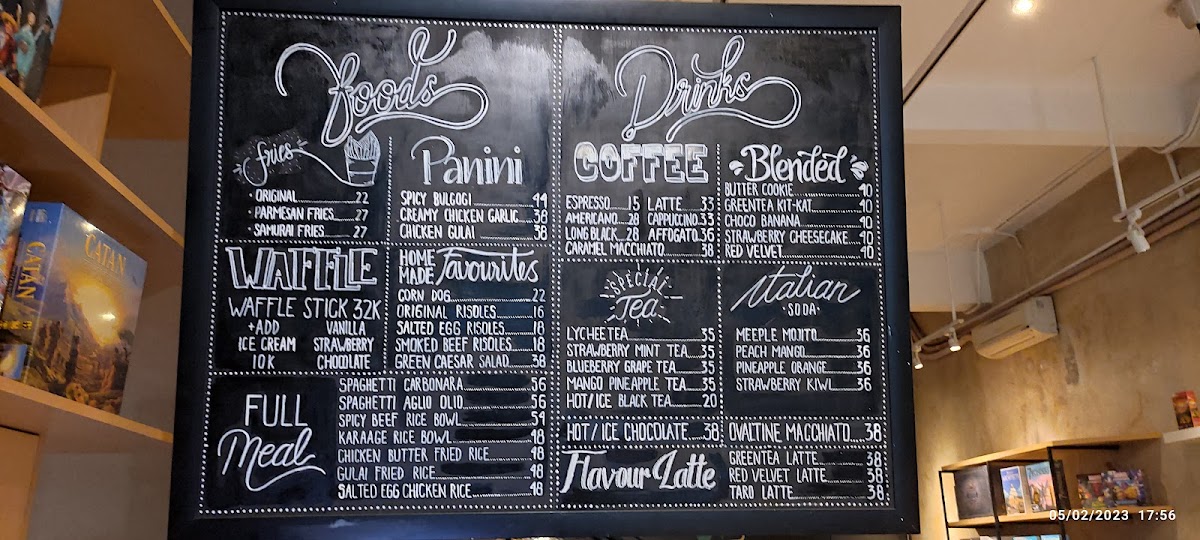 foods
fries
· ORIGINAL 22
· PARMESAN FRIES 27
· SAMURAI FRIES 27
Panini
SPICY BULGOGI 44
CREAMY CHICKEN GARLIC 38
CHICKEN GULAI 38
WAFFLE
WAFFLE STICK 32K
+ADD
ICE CREAM
10K
VANILLA
STRAWBERRY
CHOCOLATE
HOME MADE Favourites
CORN DOG 22
ORIGINAL RISOLES 16
SALTED EGG RISOLES 18
SMOKED BEEF RISOLES 18
GREEN CAESAR SALAD 38
FULL
Meal
SPAGHETTI CARBONARA 56
SPAGHETTI AGLIO OLIO 56
SPICY BEEF RICE BOWL 54
KARAAGE RICE BOWL 48
CHICKEN BUTTER FRIED RICE 48
GULAI FRIED RICE 48
SALTED EGG CHICKEN RICE 48
Drinks
COFFEE
ESPRESSO 15 LATTE 33
AMERICANO 28 CAPPUCCINO 33
LONG BLACK 28 AFFOGATO 36
CARAMEL MACCHIATO 38
Blended
BUTTER COOKIE 40
GREENTEA KIT-KAT 40
CHOCO BANANA 40
STRAWBERRY CHEESECAKE 40
RED VELVET 40
SPECIAL
Tea
LYCHEE TEA 35
STRAWBERRY MINT TEA 35
BLUEBERRY GRAPE TEA 35
MANGO PINEAPPLE TEA 35
HOT/ICE BLACK TEA 20
italian
·SODA·
MEEPLE MOJITO 36
PEACH MANGO 36
PINEAPPLE ORANGE 36
STRAWBERRY KIWI 36
HOT/ICE CHOCOLATE 38
OVALTINE MACCHIATO 38
Flavour Latte
GREENTEA LATTE 38
RED VELVET LATTE 38
TARO LATTE 38
CATAN
CATAN
05/02/2023 17:56